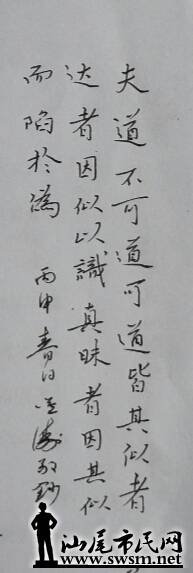 夫道不可道可道皆其似者
达者因似以識真昧者因其似
而陷於譌 丙申春日
汕尾市民网
www.swsm.net